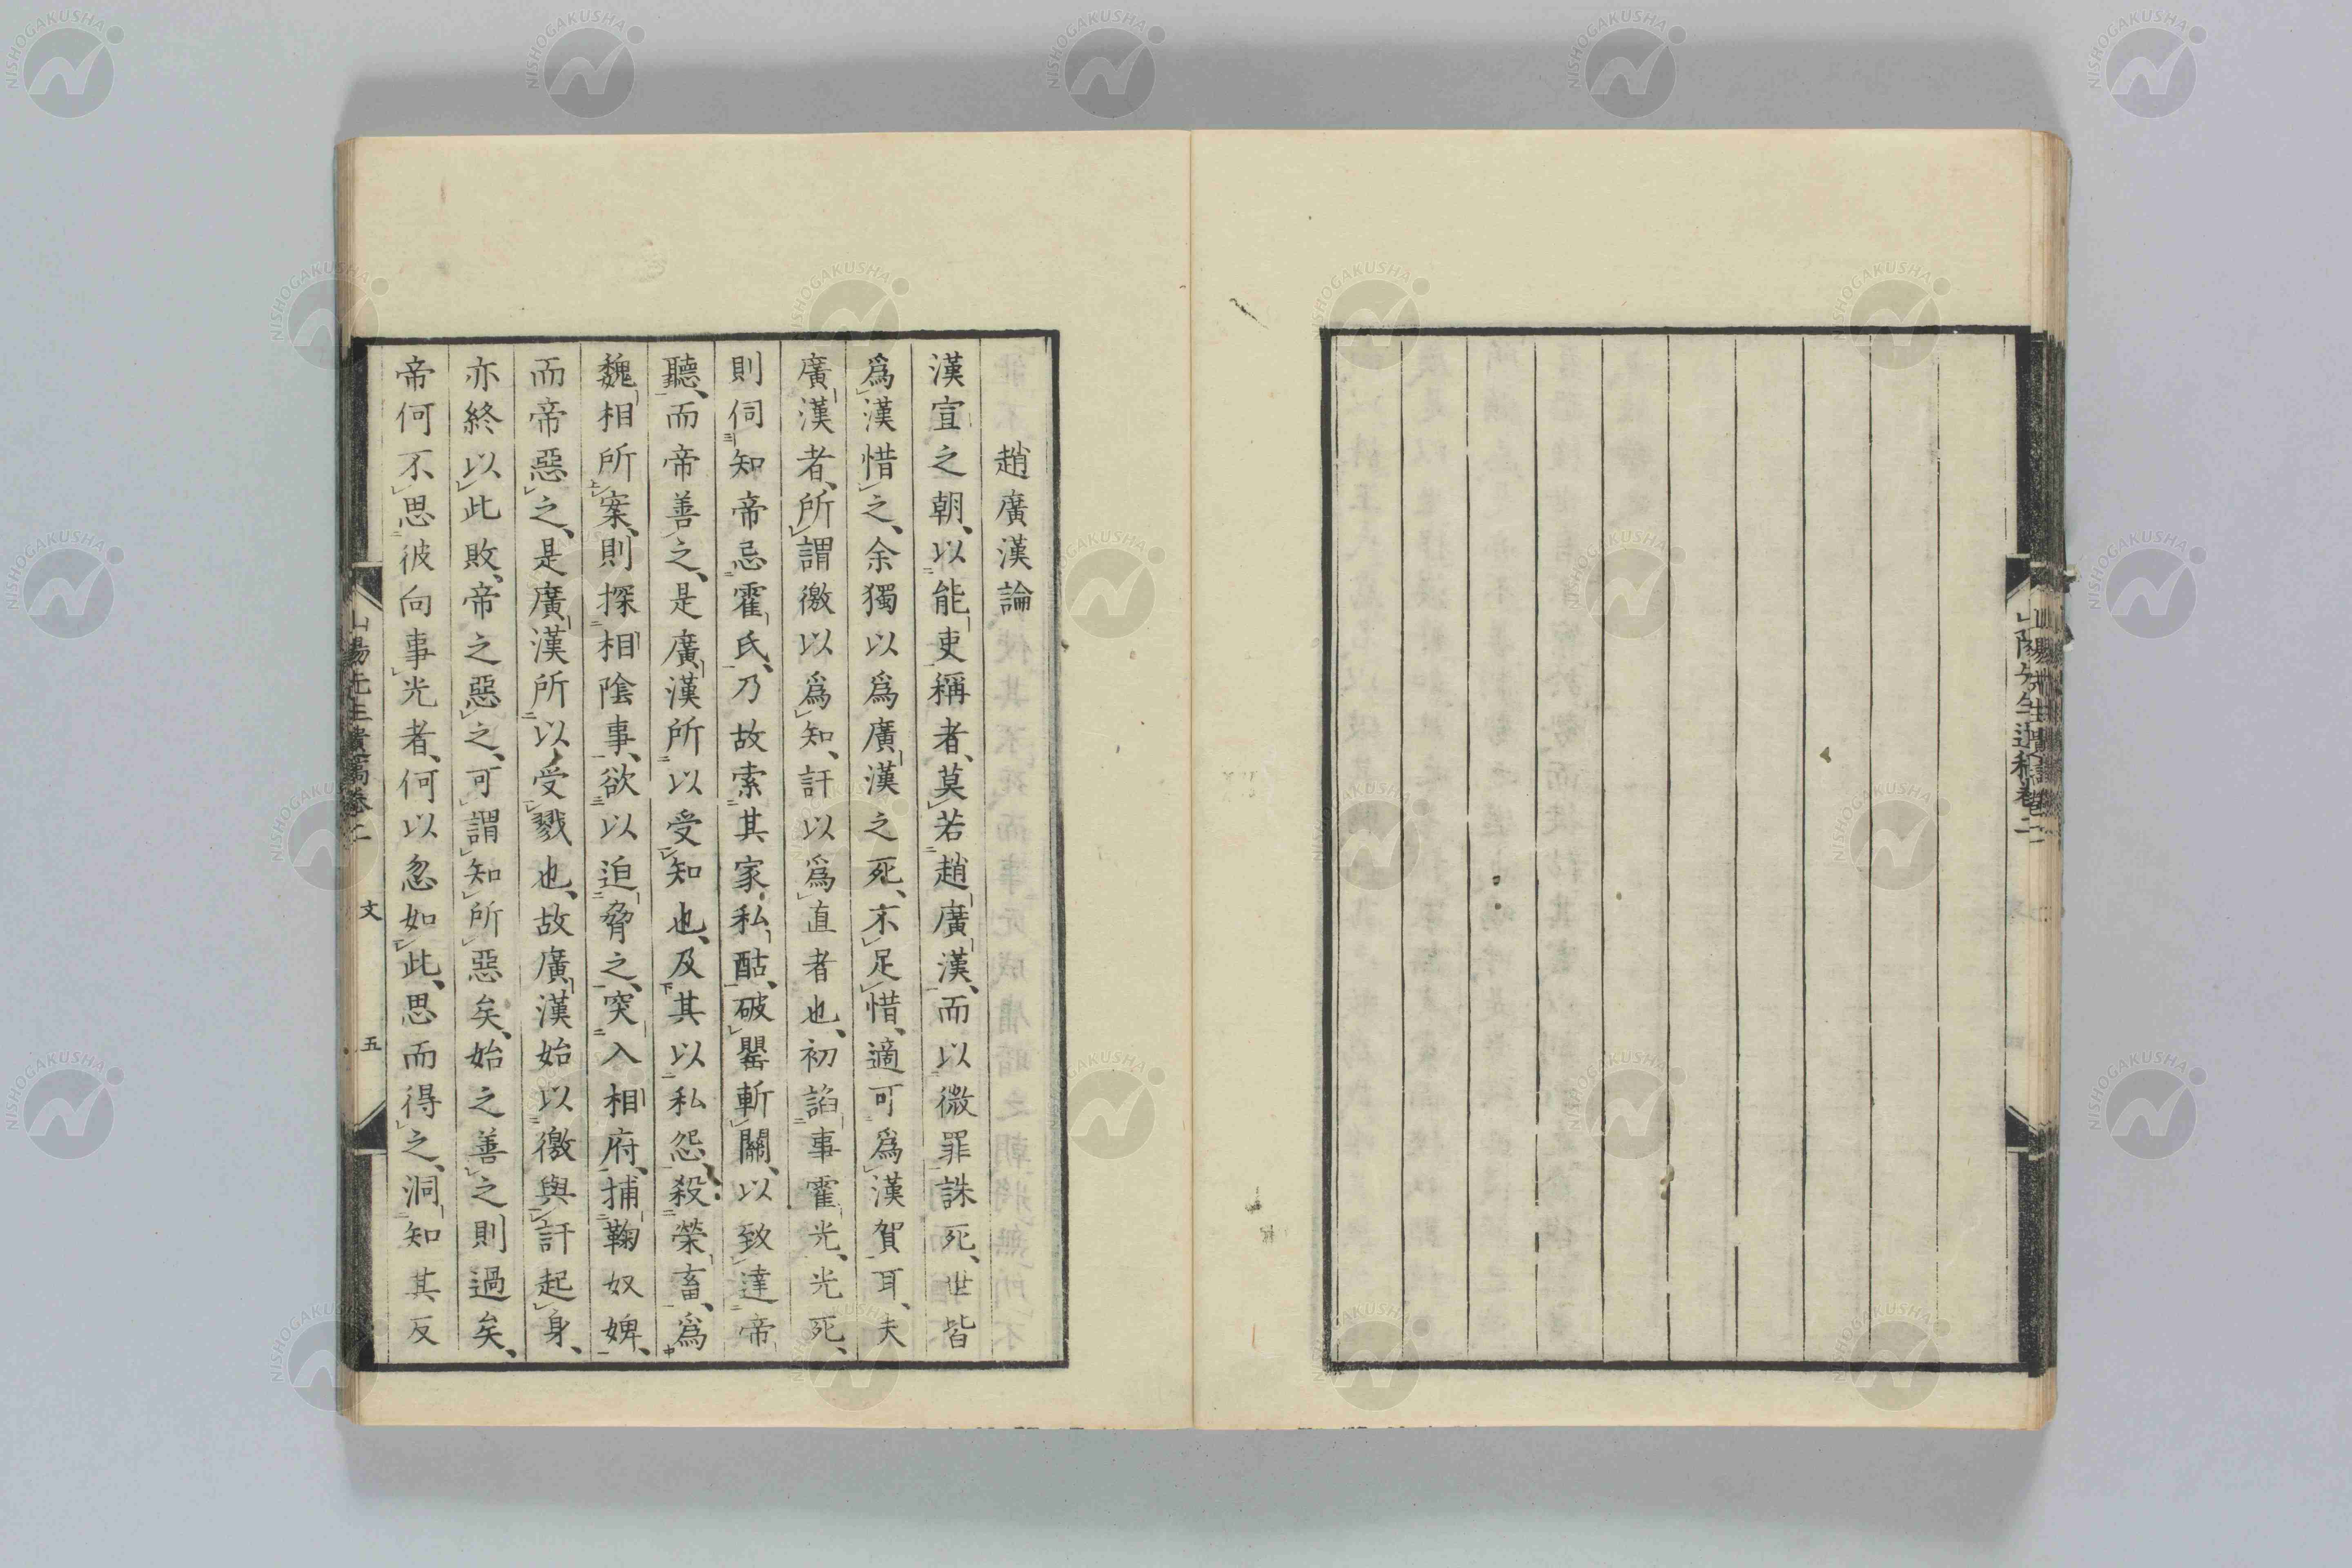 趙廣漢論
漢宣之朝、以能吏稱者、莫若趙廣漢、而以微罪誅死、世皆
爲漢惜之、余獨以爲廣漢之死、不足惜、適可爲漢賀耳、夫
廣漢者、所謂徼以爲知、訐以爲直者也、初諂事霍光、光死、
則伺知帝忌霍氏、乃故索其家、私酤、破罌斬關、以致達帝
聽、而帝善之、是廣漢所以受知也、及其以私怨、殺榮畜、爲
魏相所案、則探相陰事、欲以迫脅之、突入相府、捕鞠奴婢、
而帝惡之、是廣漢所以受戮也、故廣漢始以徼與訐起身、
亦終以此敗、帝之惡之、可謂知所惡矣、始之善之則過矣、
帝何不思彼向事光者、何以忽如此、思而得之、洞知其反
文
五
NISHOGAKUSHA